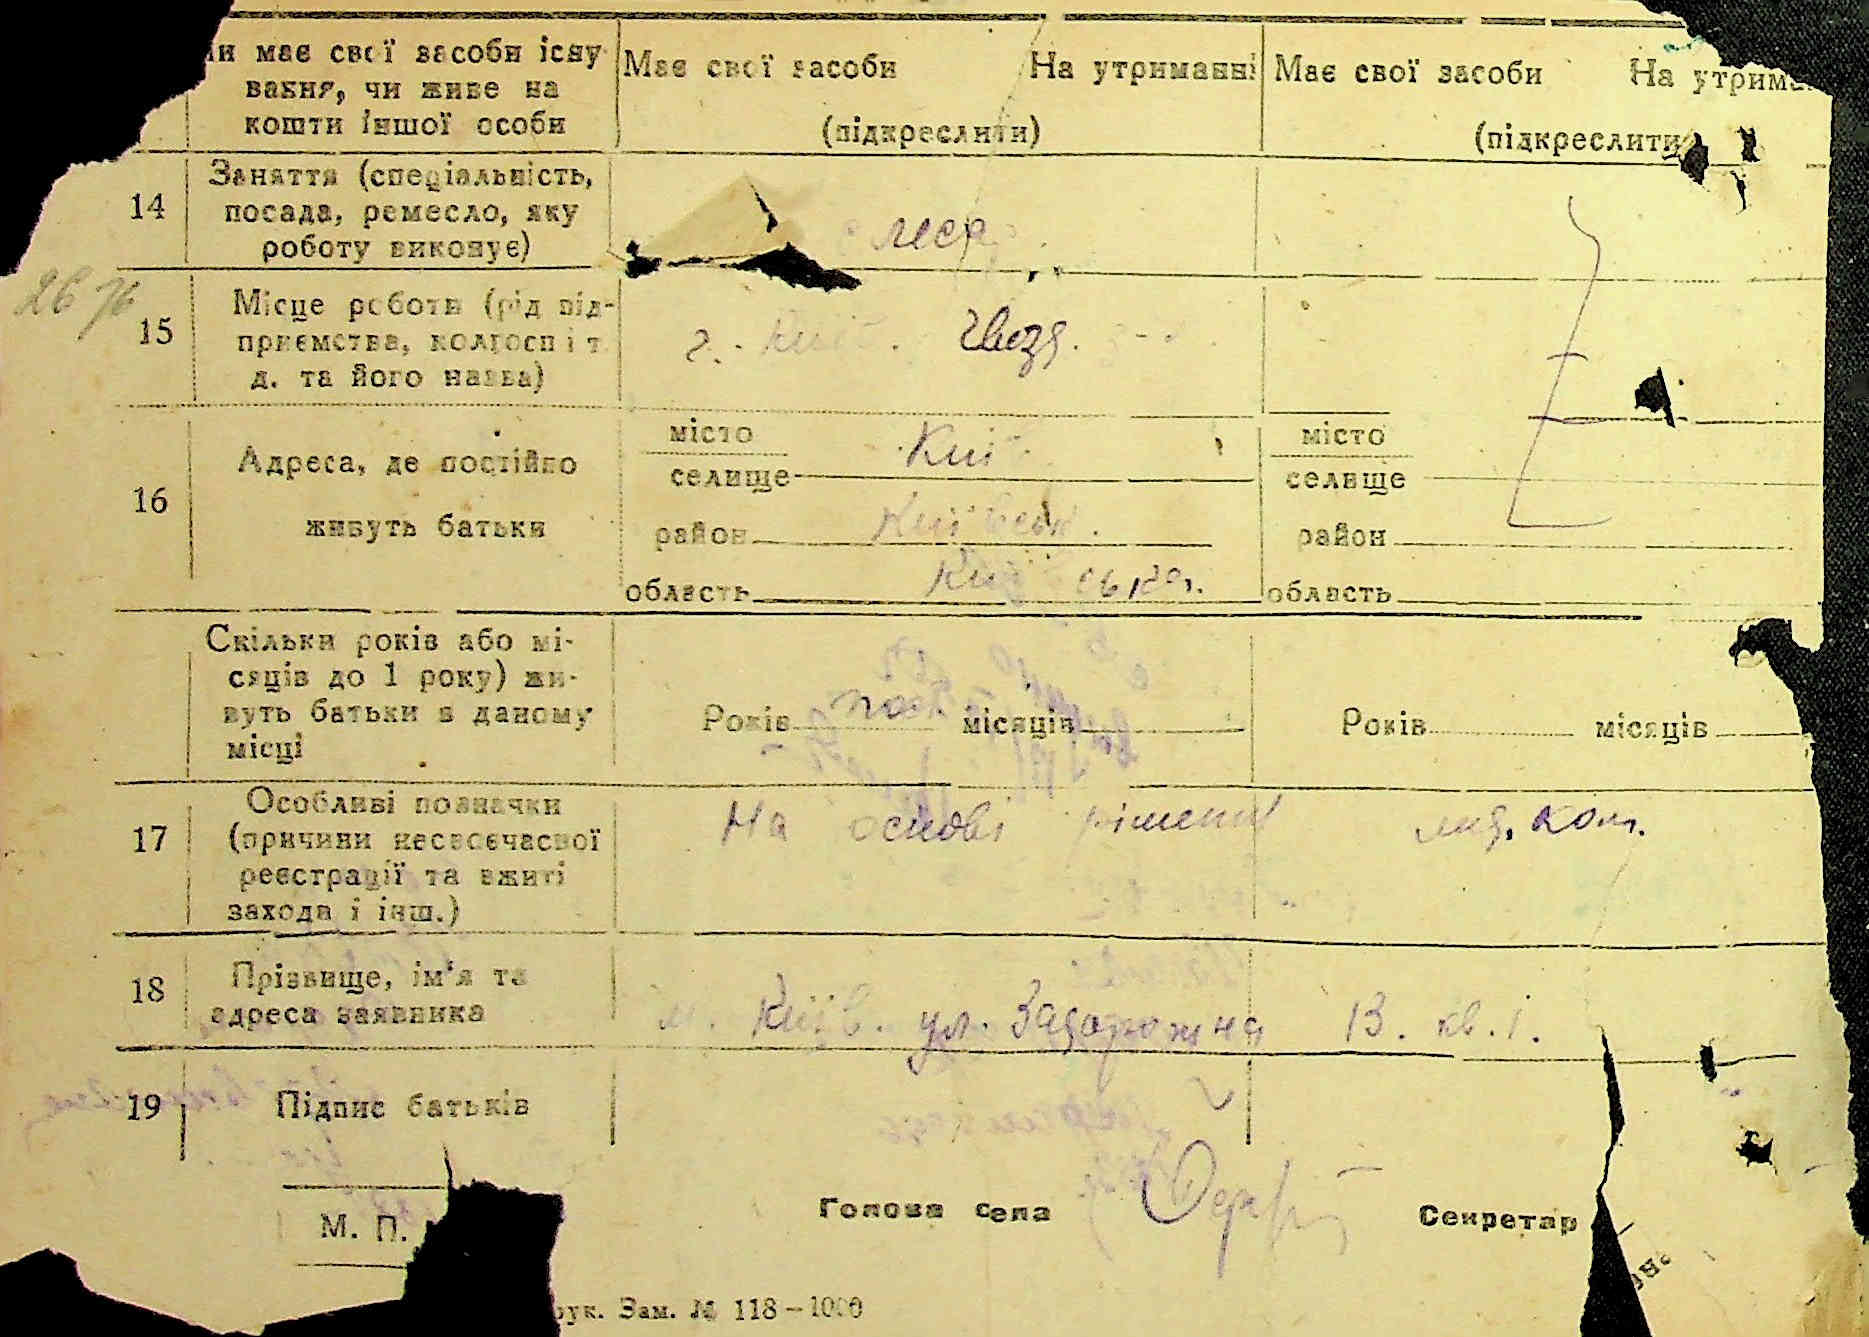 чи має свої засоби існу
вання, чи живе на
кошти іншої особи
Має свої засоби На утриманні
(підкреслити)
Має свої засоби На утрима
(підкреслити
14
Заняття (спеціальність,
посада, ремесло, яку
роботу виконує)
26 76
15
Місце роботи (рід під-
приємства, колгосп і т.
д. та його назва)
г. Київ.
16
Адреса, де постійно
живуть батьки
місто Київ
селище
район Київськ.
область
місто
селище
район
область
Скільки років або мі-
сяців до 1 року) жи-
вуть батьки в даному
місці
Років місяців
Років місяців
17
Особливі позначки
(причини несвоєчасної
реєстрації та вжиті
захода і інш.)
На основі рішення мед. ком.
18
Прізвище, ім'я та
адреса заявника
м. Київ. ул. Задорожна 13. кв. 1.
19
Підпис батьків
М. П.
Голова села
Секретар
рук. Зам. № 118–1000